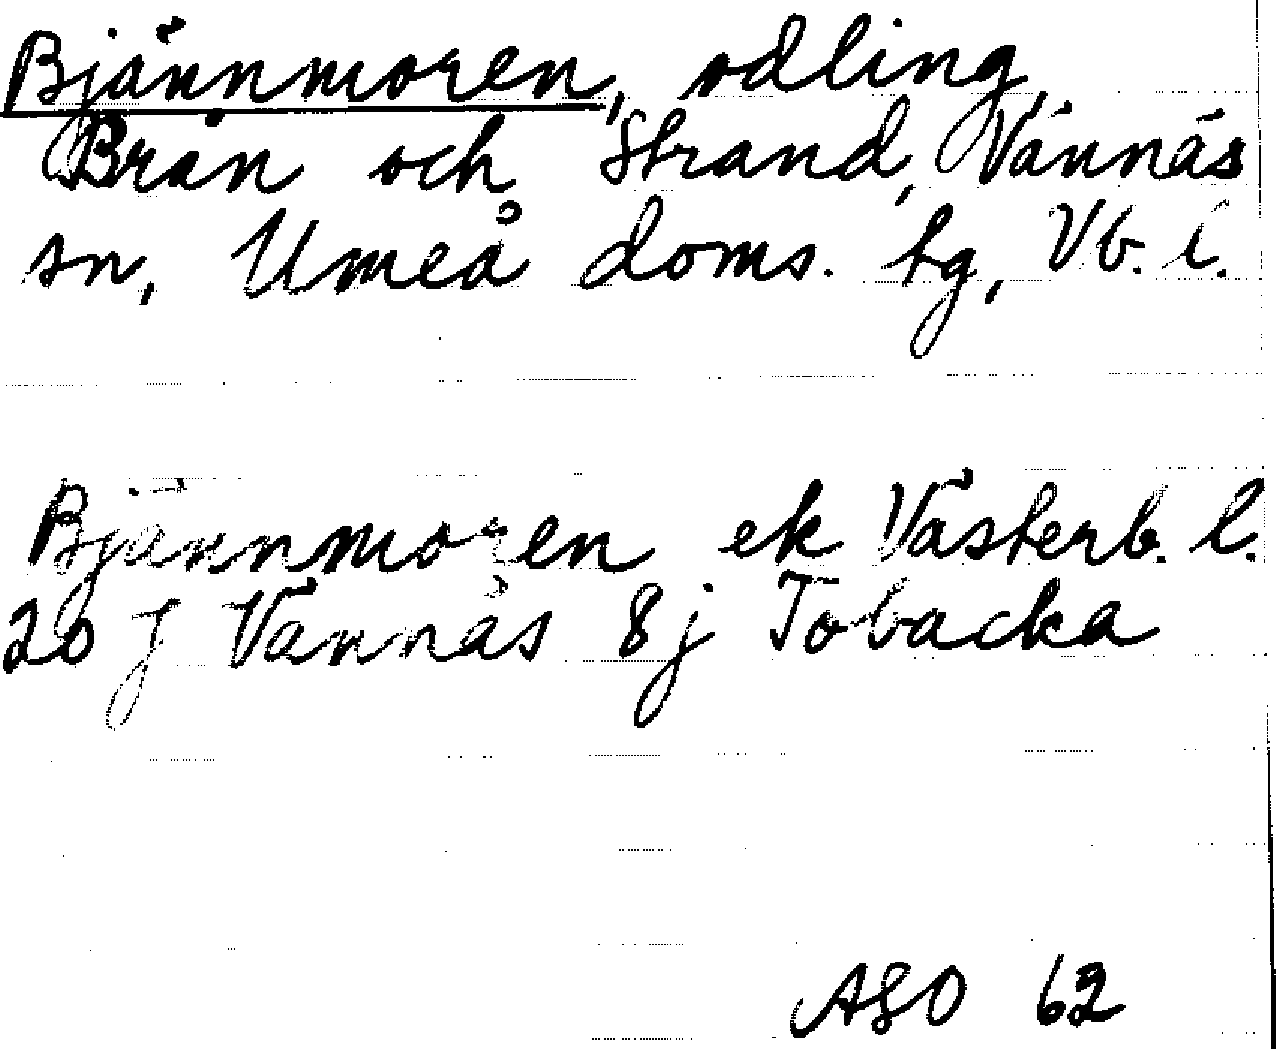 Bjännmoren, odling,
Brån och Strand, Vännäs
sn, Umeå doms. tg, Vb. l.
Bjännmoren ek Västerb. l.
20 J Vännäs 8j Tobacka
ASO 62